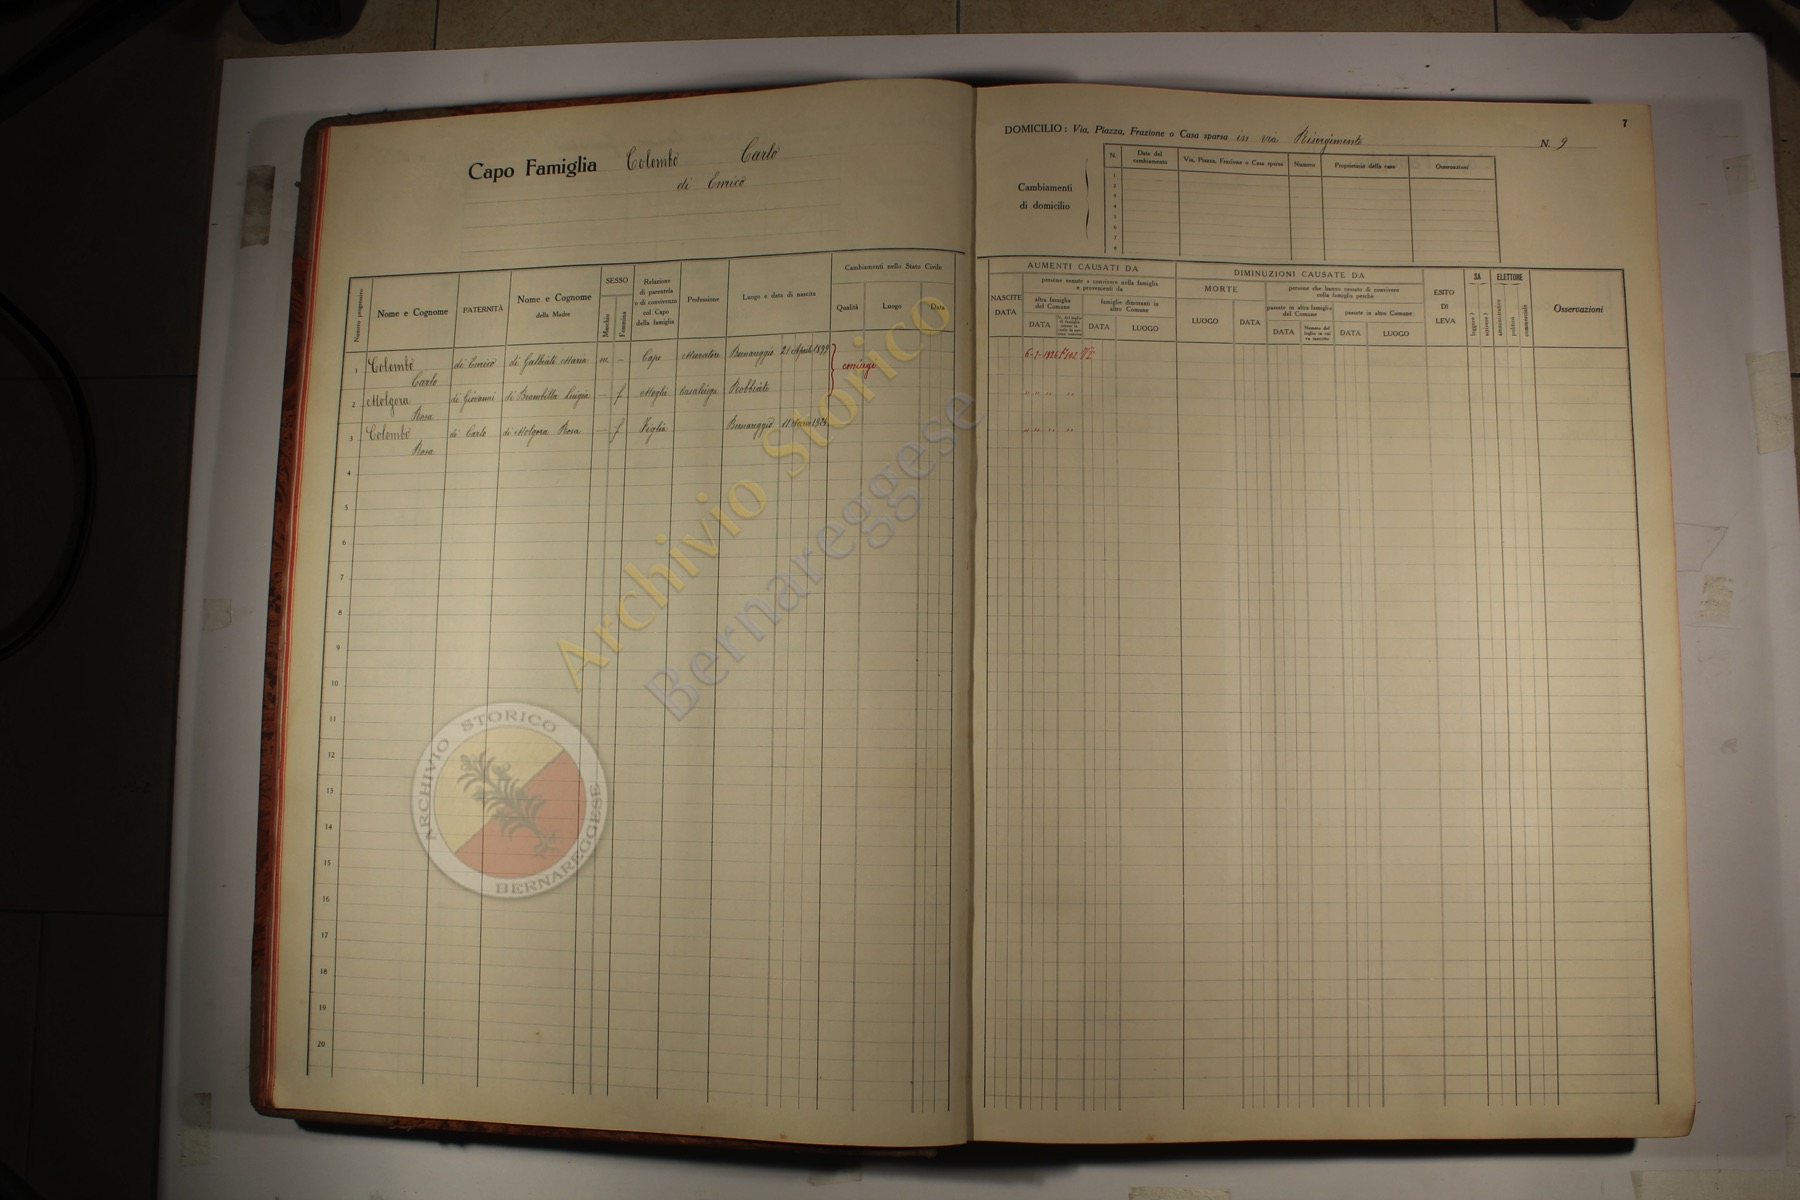 7
Capo Famiglia Colombo Carlo
di Enrico
DOMICILIO: Via, Piazza, Frazione o Casa sparsa in via Risorgimento N. 9
Cambiamenti
di domicilio
N. Data del cambiamento Via, Piazza, Frazione o Casa sparsa Numero Proprietario della casa Osservazioni
1
2
3
4
5
6
7
8
Numero progressivo
Nome e Cognome
PATERNITÀ
Nome e Cognome
della Madre
SESSO
Maschio
Femmina
Relazione
di parentela
o di convivenza
col Capo
della famiglia
Professione
Luogo e data di nascita
Cambiamenti nello Stato Civile
Qualità Luogo Data
AUMENTI CAUSATI DA
NASCITE
DATA
persone venute a convivere nella famiglia
e provenienti da
altra famiglia
del Comune
DATA
famiglie dimoranti in
altro Comune
DATA LUOGO
DIMINUZIONI CAUSATE DA
MORTE
LUOGO DATA
persone che hanno cessato di convivere
colla famiglia perchè
passate in altra famiglia
del Comune
DATA
Numero del
foglio in cui
va inscritto
passate in altro Comune
DATA LUOGO
ESITO
DI
LEVA
SA
leggere ?
scrivere ?
ELETTORE
amministrativo
politico
commerciale
Osservazioni
1 Colombo Carlo di Enrico di Galbiati Maria m - Capo Muratore Bernareggio 21 Aprile 1899 coniugi
2 Molgora Rosa di Giovanni di Brambilla Luigia - f Moglie Casalinga Robbiate
3 Colombo Rosa di Carlo di Molgora Rosa - f Figlia Bernareggio
4
5
6
7
8
9
10
11
12
13
14
15
16
17
18
19
20
Archivio Storico
Bernareggese
ARCHIVIO STORICO
BERNAREGGESE